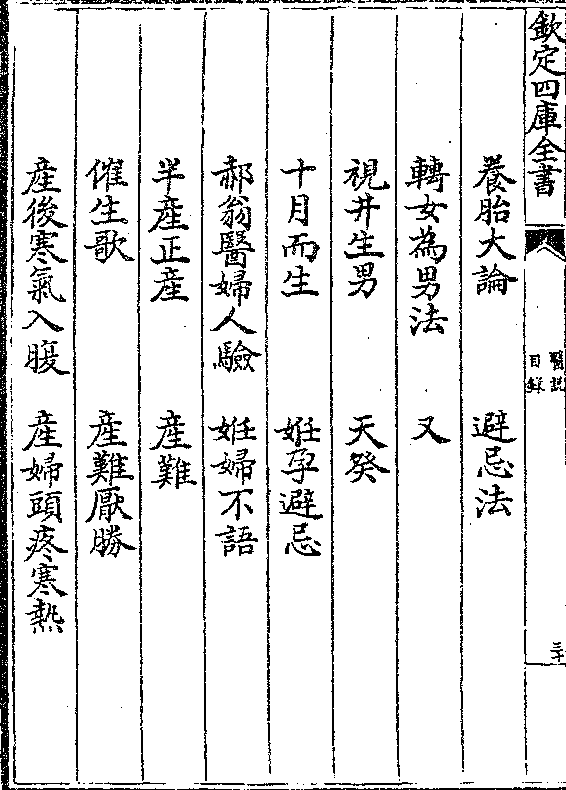 欽定四庫全書
醫說
目錄
三十
養胎大論　避忌法
轉女為男法　又
視井生男　天癸
十月而生　姙孕避忌
郝翁醫婦人驗　姙婦不語
半產正產　產難
催生歌　產難厭勝
產後寒氣入腹　產婦頭疼寒熱